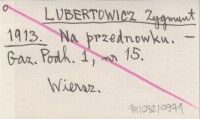 LUBERTOWICZ Zygmunt
1913. Na przednówku. —
Gaz. Podh. 1, nr 15.
Wiersz.